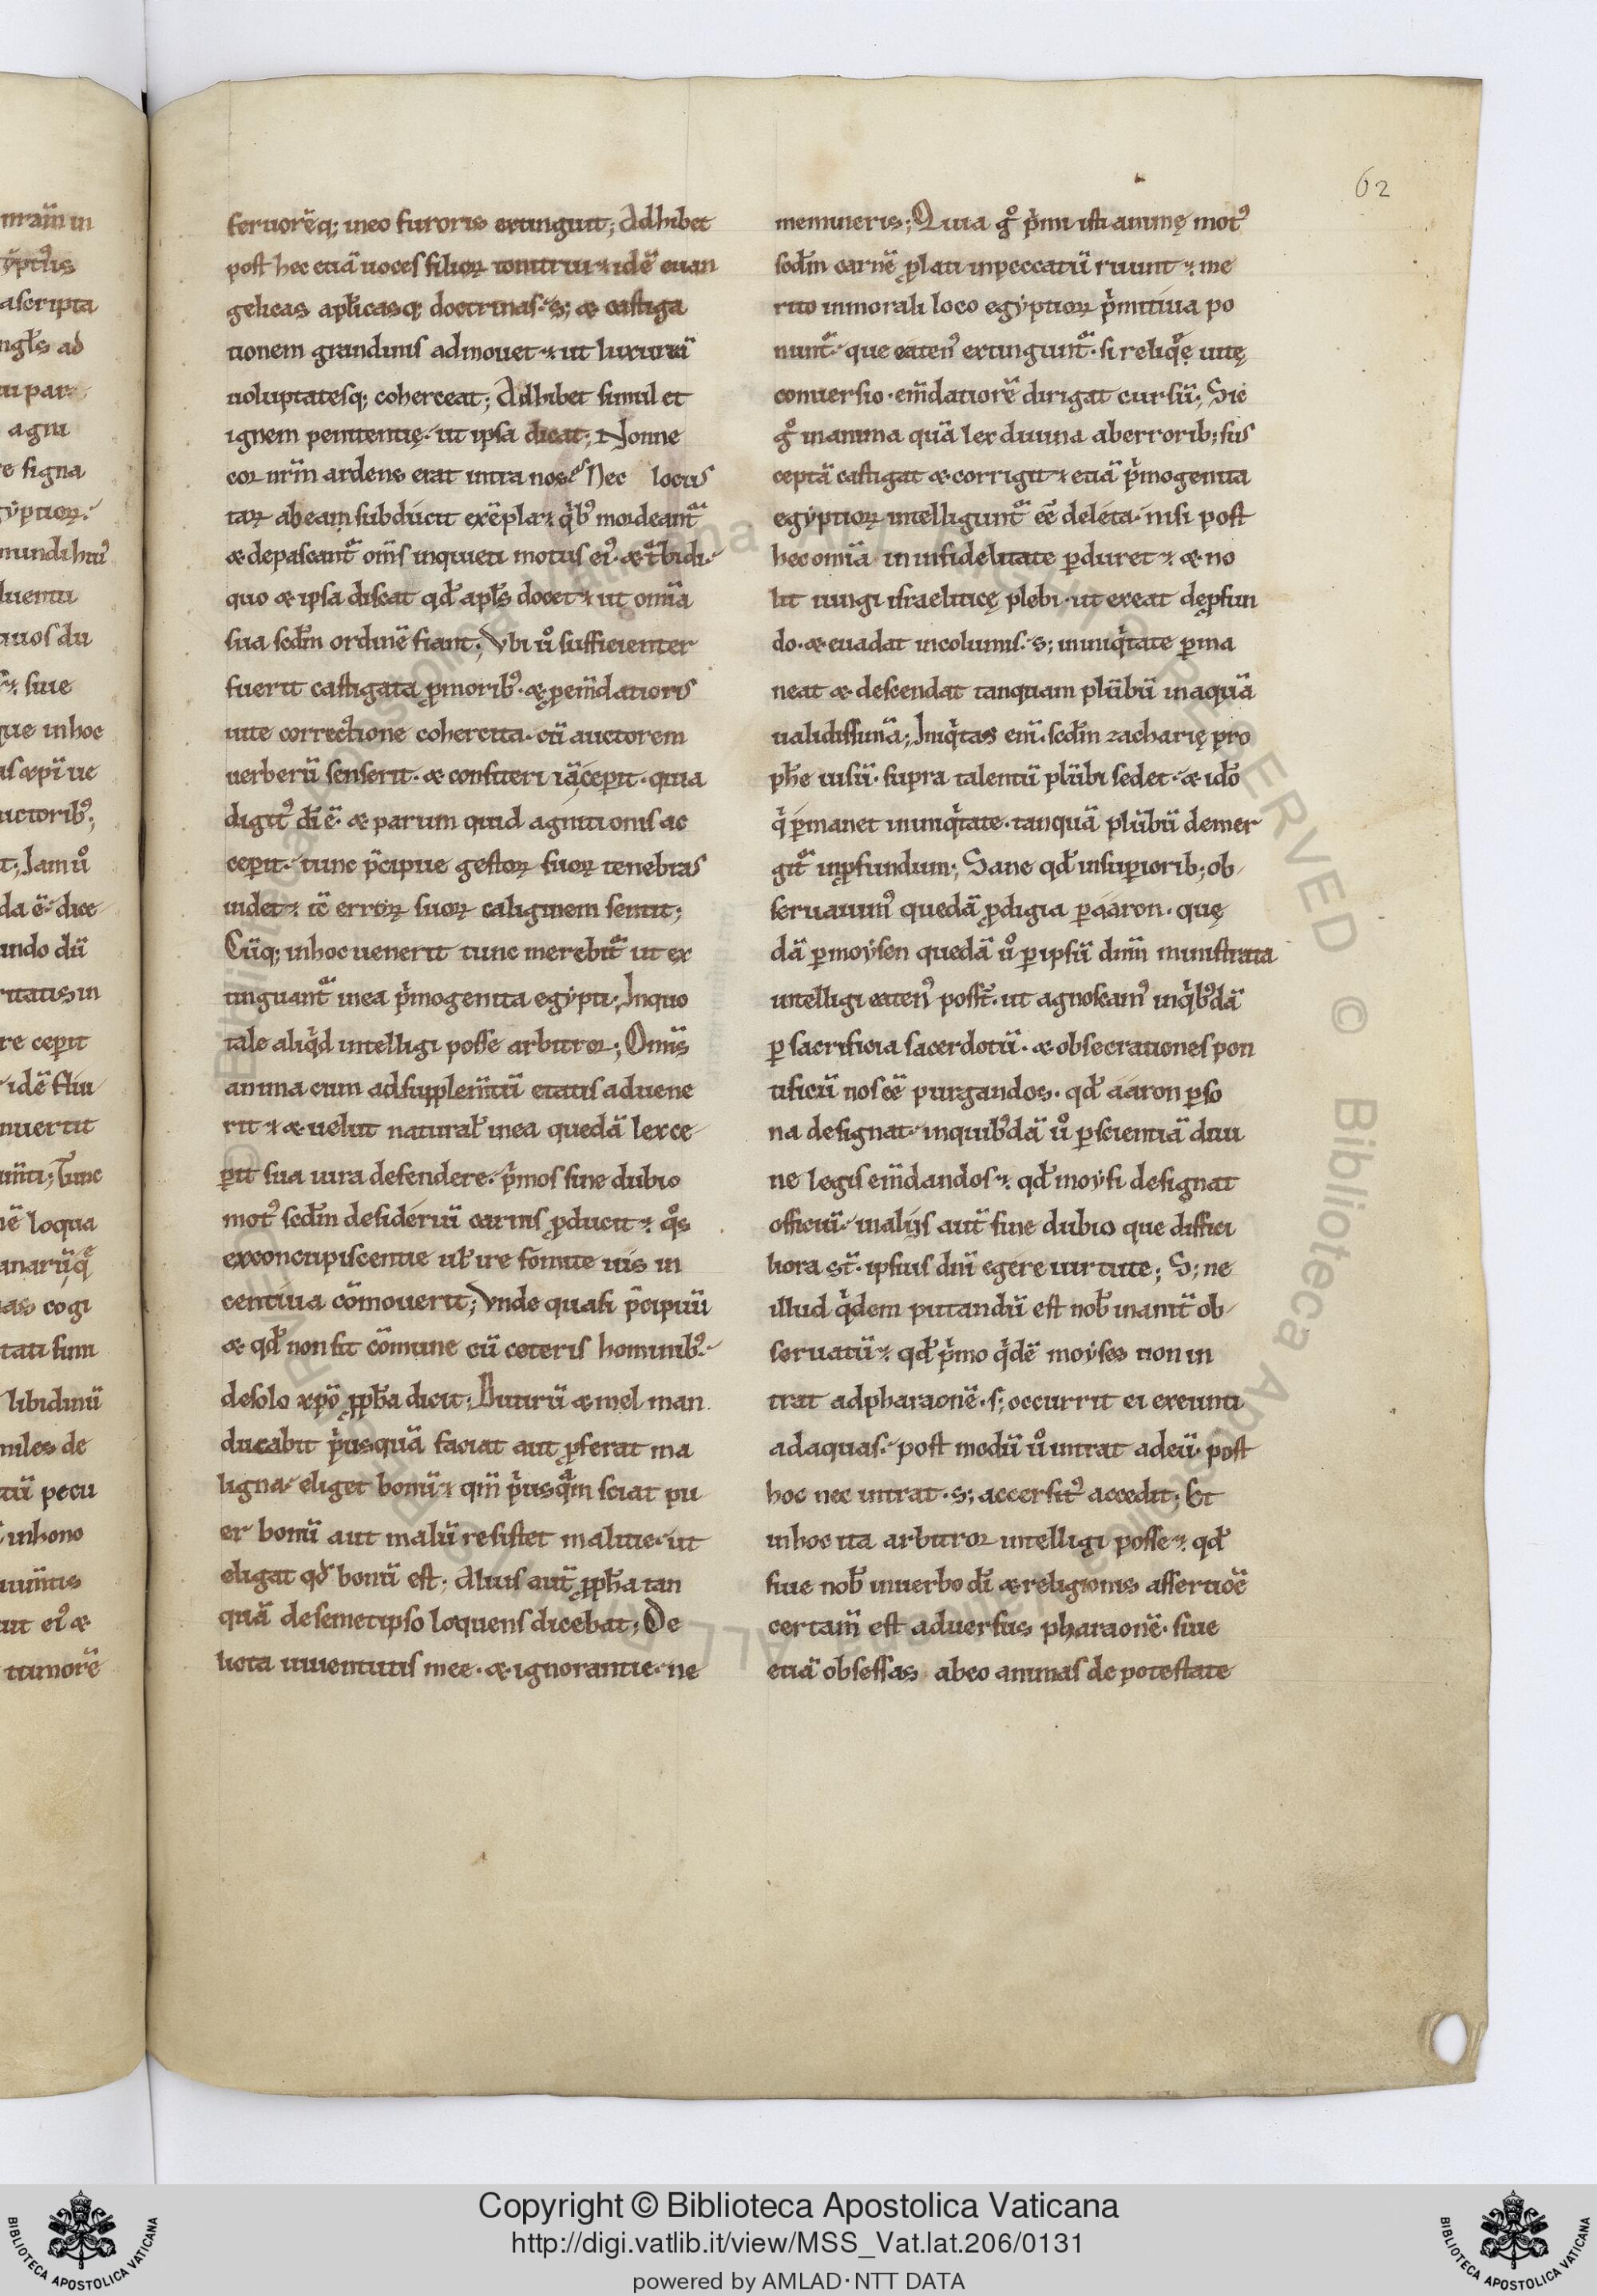 62
feruorēq; ineo furoris extinguit; Adhibet
post hec etiā uoces filioꝝ tonitrui ⁊ idē euan
gelicas apl̓icasq; doctrinas. s; æ castiga
tionem grandinis admouet ⁊ ut luxuriā
uoluptatesq; coherceat; Adhibet simul et
ignem penitentię. ut ipsa dicat; Nonne
cor nr̄m ardens erat intra nos? Nec locus
taꝝ abeam subducit exēpla ⁊ qͥbꝰ mordeantᷣ
æ depascantᷣ om̄s inquieti motus eiꝰ. æ tᷣbidi.
quo æ ipsa discat qd̓ apl̓s docet ⁊ ut omīa
sua scdm̄ ordinē fiant; Vbi u̇ͦ sufficienter
fuerit castigata ꝑmoribꝰ. æ ꝑem̄dationis
uite correctione cohercita. cū auctorem
uerberū senserit. æ confiteri iā ceperit. quia
digitꝰ dī ē. æ parum quid agnitionis ac
ceperit. tunc p̄cipue gestoꝝ suoꝝ tenebras
uidet ⁊ tc̄ erroꝝ suoꝝ caliginem sentit;
Cūq; inhoc uenerit tunc merebitᷣ ut ex
tinguantᷣ inea pͥmogenita egypti; Inquo
tale aliqͥd intelligi posse arbitror; Omīs
anima cum adsupplem̄tū etatis aduene
rit ⁊ æ uelut natural̓ inea quedā lex ce
perit sua iura defendere. pͥmos sine dubio
motꝰ scdm̄ desideriū carnis ꝓducit ⁊ qͦs
exconcupiscentie ul̓ ire fomite uis in
centiua cōmouerit; Vnde quasi p̄cipuū
æ qd̓ non sit cōmune cū ceteris hominibꝰ.
desolo xp̄o ꝓph̓a dicit; Butirū æ mel man
ducabit pͥusquā sciat aut ꝓferat ma
ligna. eliget bonū ⁊ qm̄ pͥusqᷓm sciat pu
er bonū aut malū resistet malitie. ut
eligat qd̓ bonū est; Alius aut̄ ꝓph̓a tan
quā desemetipso loquens dicebat; De
licta iuuentutis mee. æ ignorantie. ne
memineris; Quia gͦ pͥmi isti animę motꝰ
scdm̄ carnē ꝓlati inpeccatū ruunt ⁊ me
rito inmorali loco egyptioꝝ pͥmitiua po
nuntᷣ. que eatenꝰ extinguntᷣ. si reliqᷓę uitę
conuersio. em̄datiorē dirigat cursū; Sic
gͦ inanima quā lex diuina aberrorib; sus
ceptā castigat æ corrigit ⁊ etiā pͥmogenita
egyptioꝝ intelliguntᷣ eē deleta. nisi post
hec omīa ininfidelitate ꝑduret ⁊ æ no
lit iungi israeliticę plebi. ut exeat deꝓfun
do. æ euadat incolumis. s; ininiqͥtate ꝑma
neat æ descendat tanquam plūbū inaquā
ualidissimā; Iniqͥtas eni. scdm̄ zacharię pro
ph̓e uisū. supra talentū plūbi sedet. æ id̓o
qͥ ꝑmanet ininiqͥtate. tanquā plūbū demer
gitᷣ inꝓfundum; Sane qd̓ insuꝑiorib; ob
seruauimꝰ quedā ꝓdigia ꝑ aaron. quę
dā ꝑ moysen quedā u̇ͦ ꝑ ipsū dn̄m ministrata
intelligi eatenꝰ poss̄t. ut agnoscamꝰ inqͥbꝰdā
ꝑ sacrificia sacerdotū. æ obsecrationes pon
tificū nos eē purgandos. qd̓ aaron ꝑso
na designat. inquibꝰdā u̇ͦ ꝑ scientiā diui
ne legis em̄dandos ⁊. qd̓ moysi designat
officiū. inaliјs aut̄ sine dubio que diffici
liora st̄. ipsius dnī egere uirtute; S; ne
illud qͥdem putandū est nob̓ inanit̄ ob
seruatū ⁊. qd̓ pͥmo qͥdē moyses non in
trat adpharaonē. s; occurrit ei exeunti
adaquas. post modū u̇ͦ intrat adeū. post
hoc nec intrat. s; accersitꝰ accedit; Et
inhoc ita arbitror intelligi posse ⁊. qd̓
siue nob̓ inuerbo dī æ religionis assertiōē
certam̄ est aduersus pharaonē. siue
etiā obsessas abeo animas de potestate
Copyright © Biblioteca Apostolica Vaticana
http://digi.vatlib.it/view/MSS_Vat.lat.206/0131
powered by AMLAD·NTT DATA